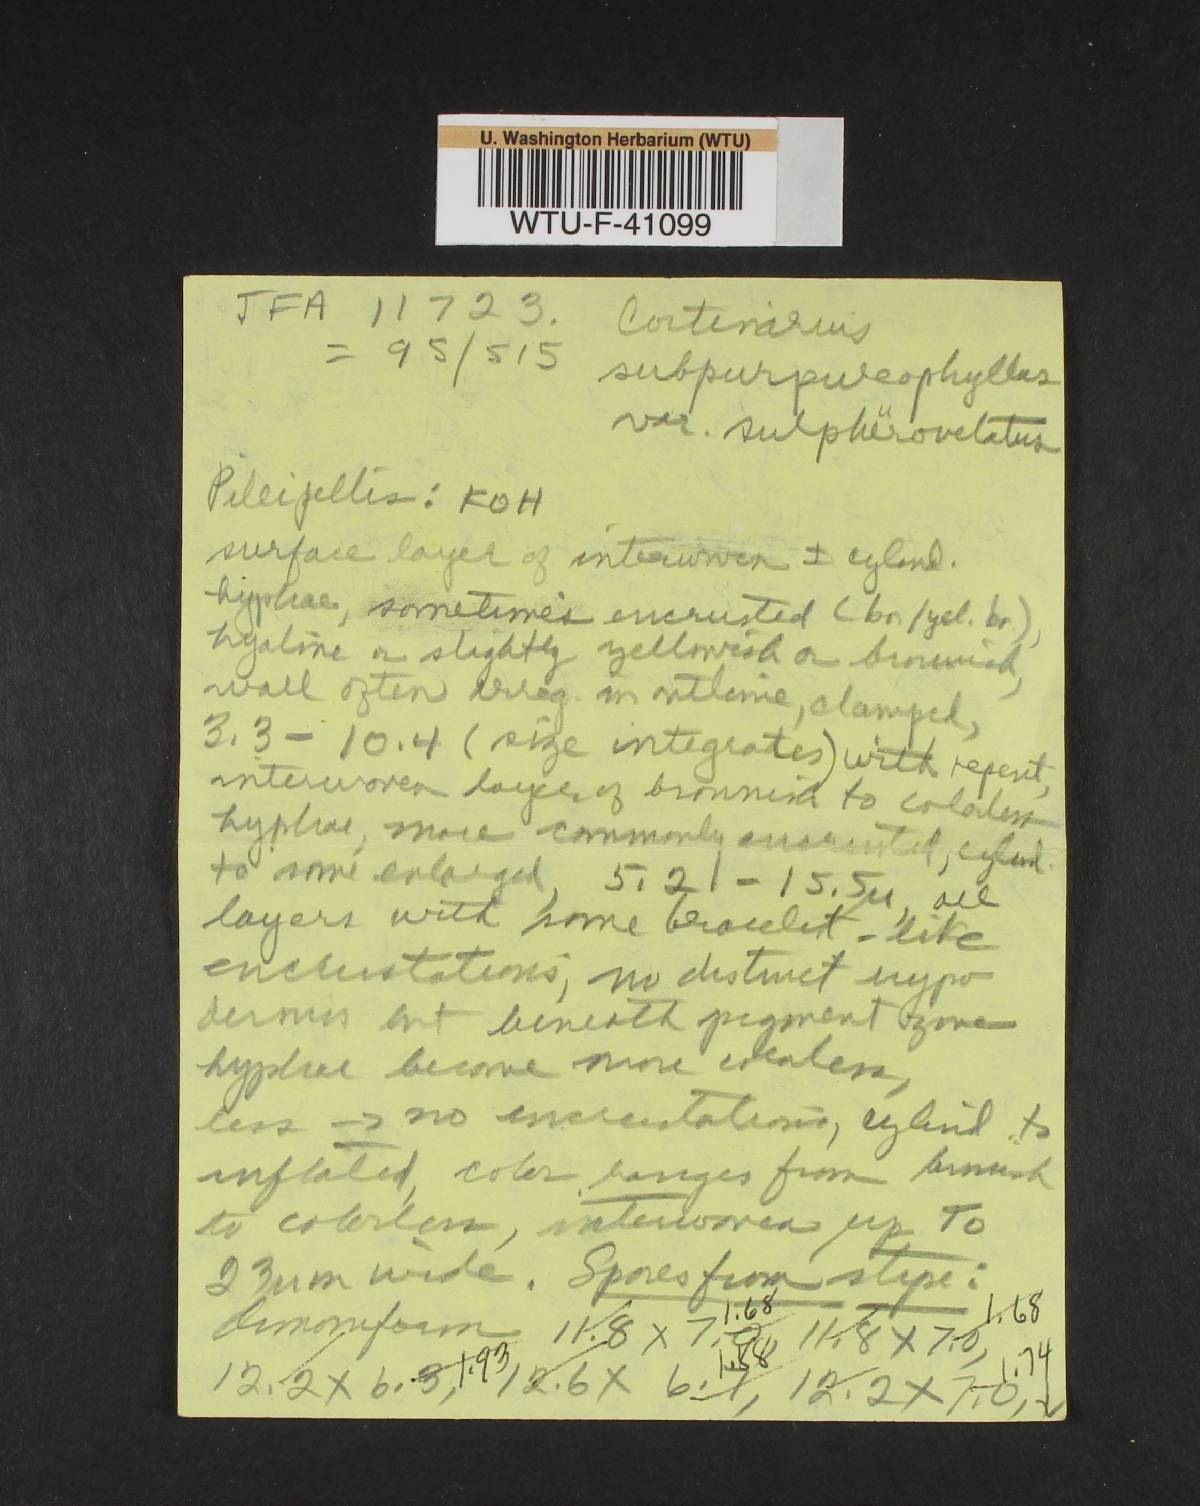 U. Washington Herbarium (WTU)
WTU-F-41099
JFA 11723.
= 95/515
Cortinarius
subpurpureophyllus
var. sulphürovelatus
Pileipellis: KOH
surface layer of interwoven ± cylind.
hyphae, sometimes encrusted (br./yel. br.),
hyaline or slightly yellowish or brownish,
wall often irreg. in outline, clamped,
3.3 – 10.4 (size integrates) with repent,
interwoven layer of brownish to colorless
hyphae, more commonly encrusted, cylind.
to some enlarged, 5.2 – 15.5µ, all
layers with some bracelet-like
encrustations, no distinct hypo
dermis but beneath pigment zone
hyphae become more colorless,
less → no encrustations, cylind. to
inflated, color ranges from brnish
to colorless, interwoven up to
23µm wide. Spores from stipe:
limoniform 11.8 x 7.0, 1.68 11.8 x 7.0, 1.68
12.2 x 6.3, 1.93 12.6 x 6.7, 1.88 12.2 x 7.0, 1.74